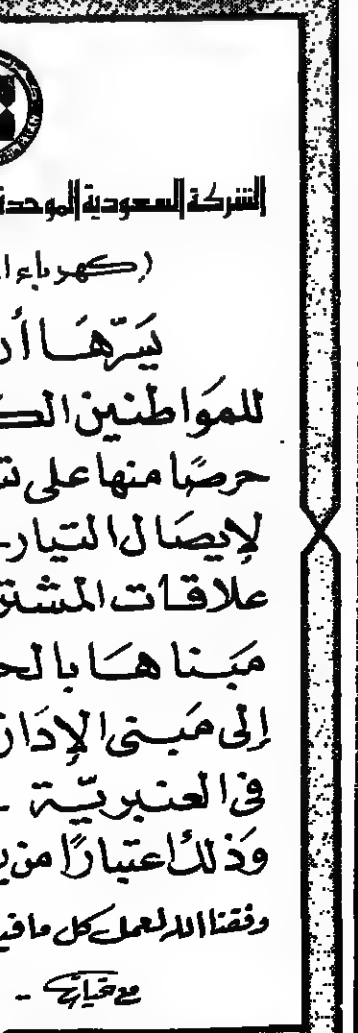 الشركة السعودية الموحدة
(كهرباء ا
يَسرّهَا أن
للمَواطنين الك
حرصًا منها على ت
لإيصَال التيار
علاقات المشتر
مَبناهَا بالح
إلى مَبنى الإدَار
في العنبريّة -
وَذلك اعتبارًا من ي
وفقنا الله لعمل كل ما في
مع تحيات -